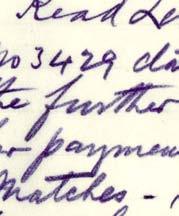 Read Le
No 3429 da
the further
for paymen
Matches -